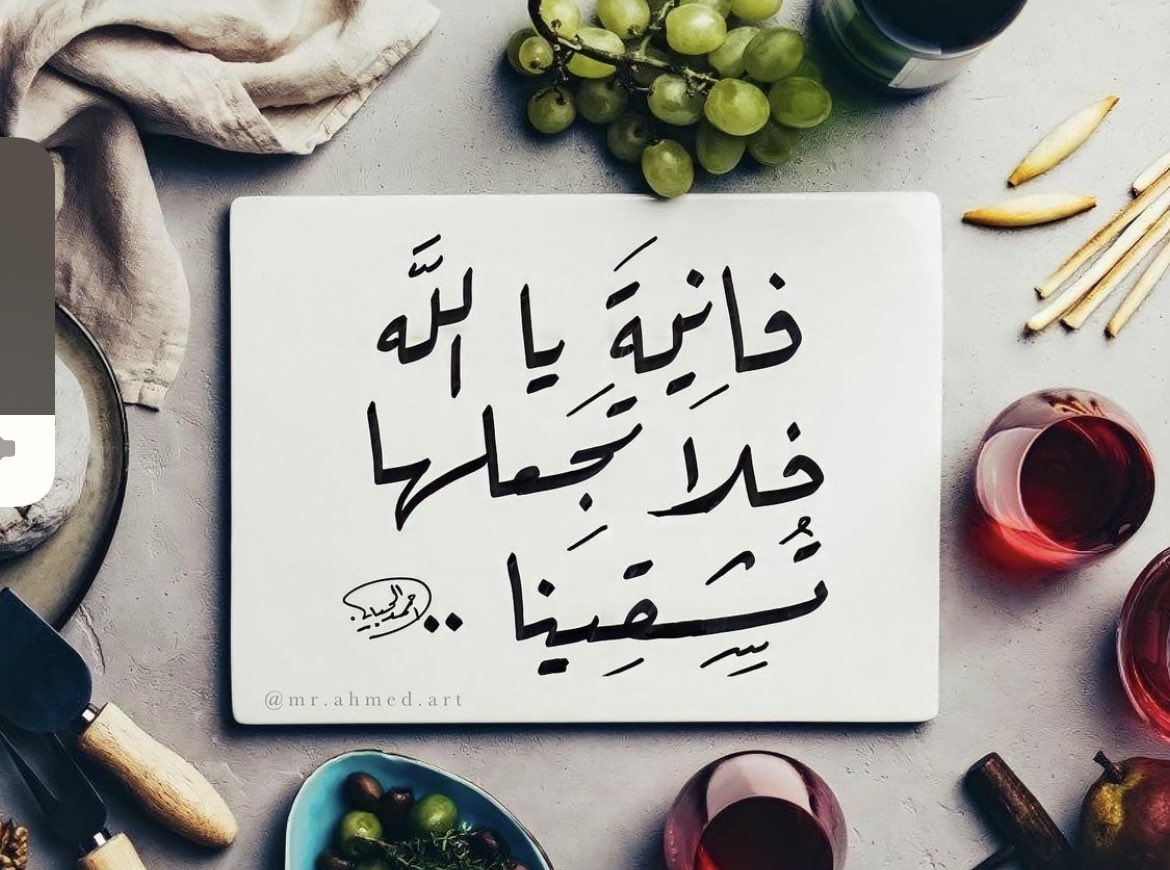 فانِيةَ يا اللَّه
فلا تَجعلها
تُشقِينا ..
@mr.ahmed.art